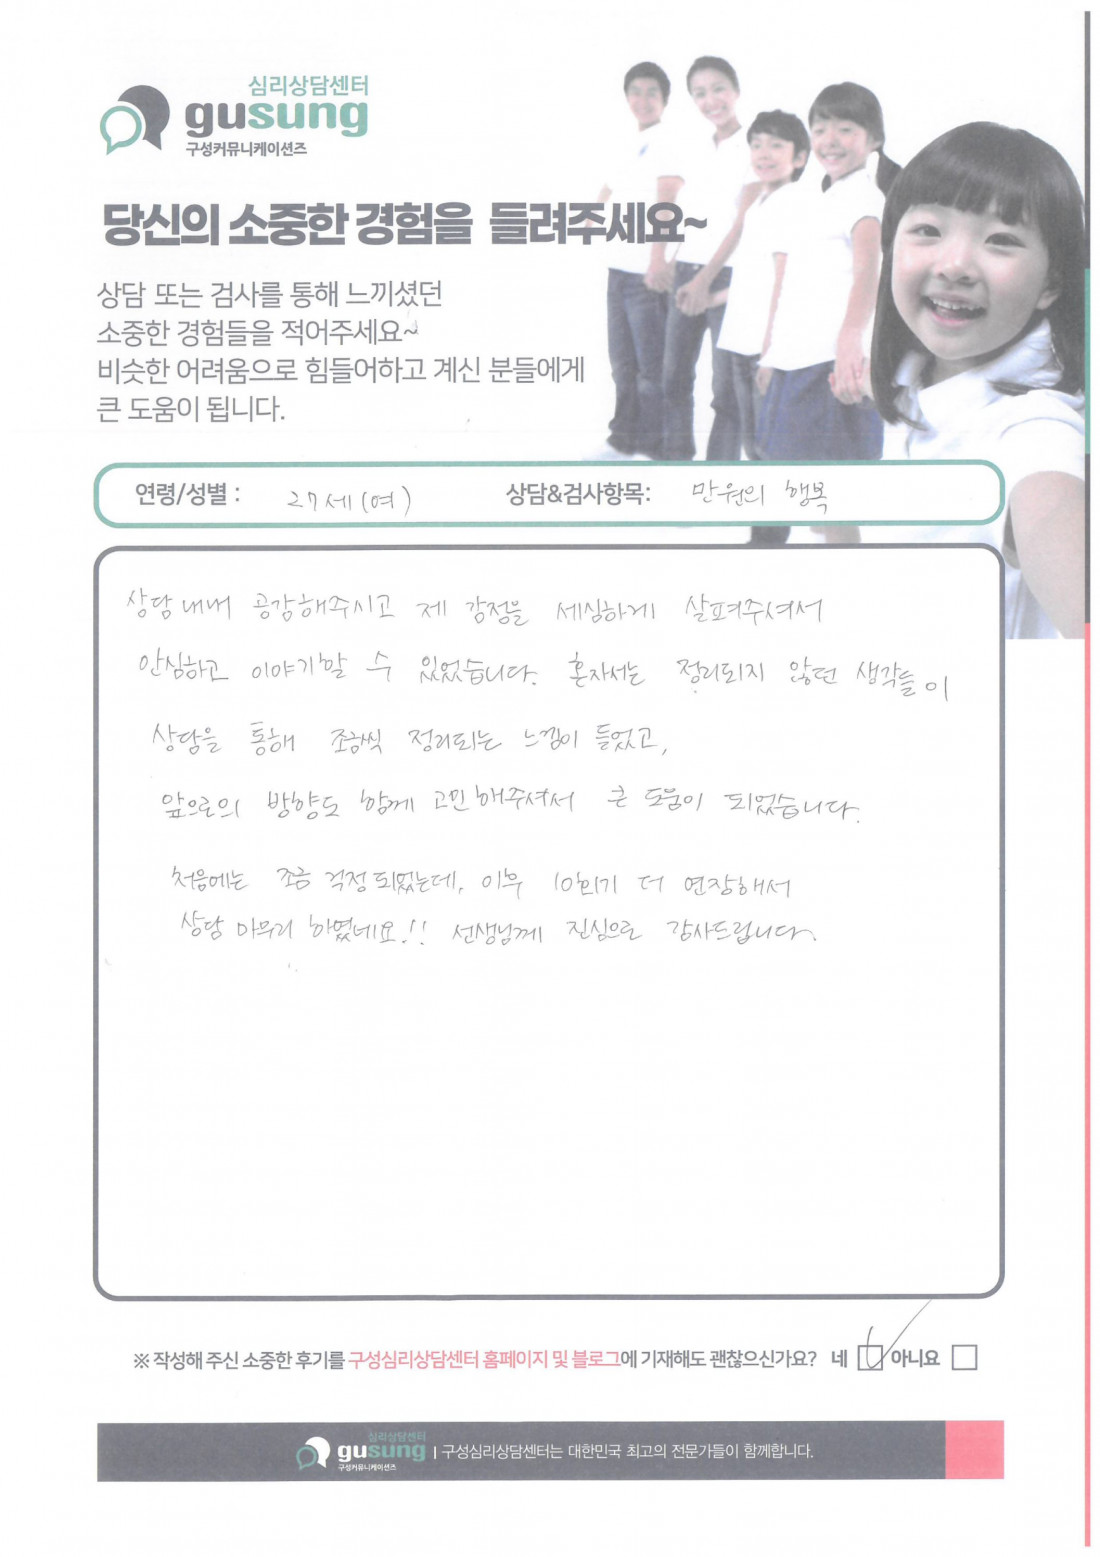 심리상담센터
gusung
구성커뮤니케이션즈
당신의 소중한 경험을 들려주세요~
상담 또는 검사를 통해 느끼셨던
소중한 경험들을 적어주세요~
비슷한 어려움으로 힘들어하고 계신 분들에게
큰 도움이 됩니다.
연령/성별 : 27세(여) 상담&검사항목: 만원의 행복
상담내내 공감해주시고 제 감정을 세심하게 살펴주셔서
안심하고 이야기할 수 있었습니다. 혼자서는 정리되지 않던 생각들이
상담을 통해 조금씩 정리되는 느낌이 들었고,
앞으로의 방향도 함께 고민해주셔서 큰 도움이 되었습니다.
처음에는 조금 걱정되었는데, 이후 10회기 더 연장해서
상담 마무리 하였네요!! 선생님께 진심으로 감사드립니다.
※ 작성해 주신 소중한 후기를 구성심리상담센터 홈페이지 및 블로그에 기재해도 괜찮으신가요? 네 아니요
심리상담센터
gusung
구성커뮤니케이션즈
구성심리상담센터는 대한민국 최고의 전문가들이 함께합니다.